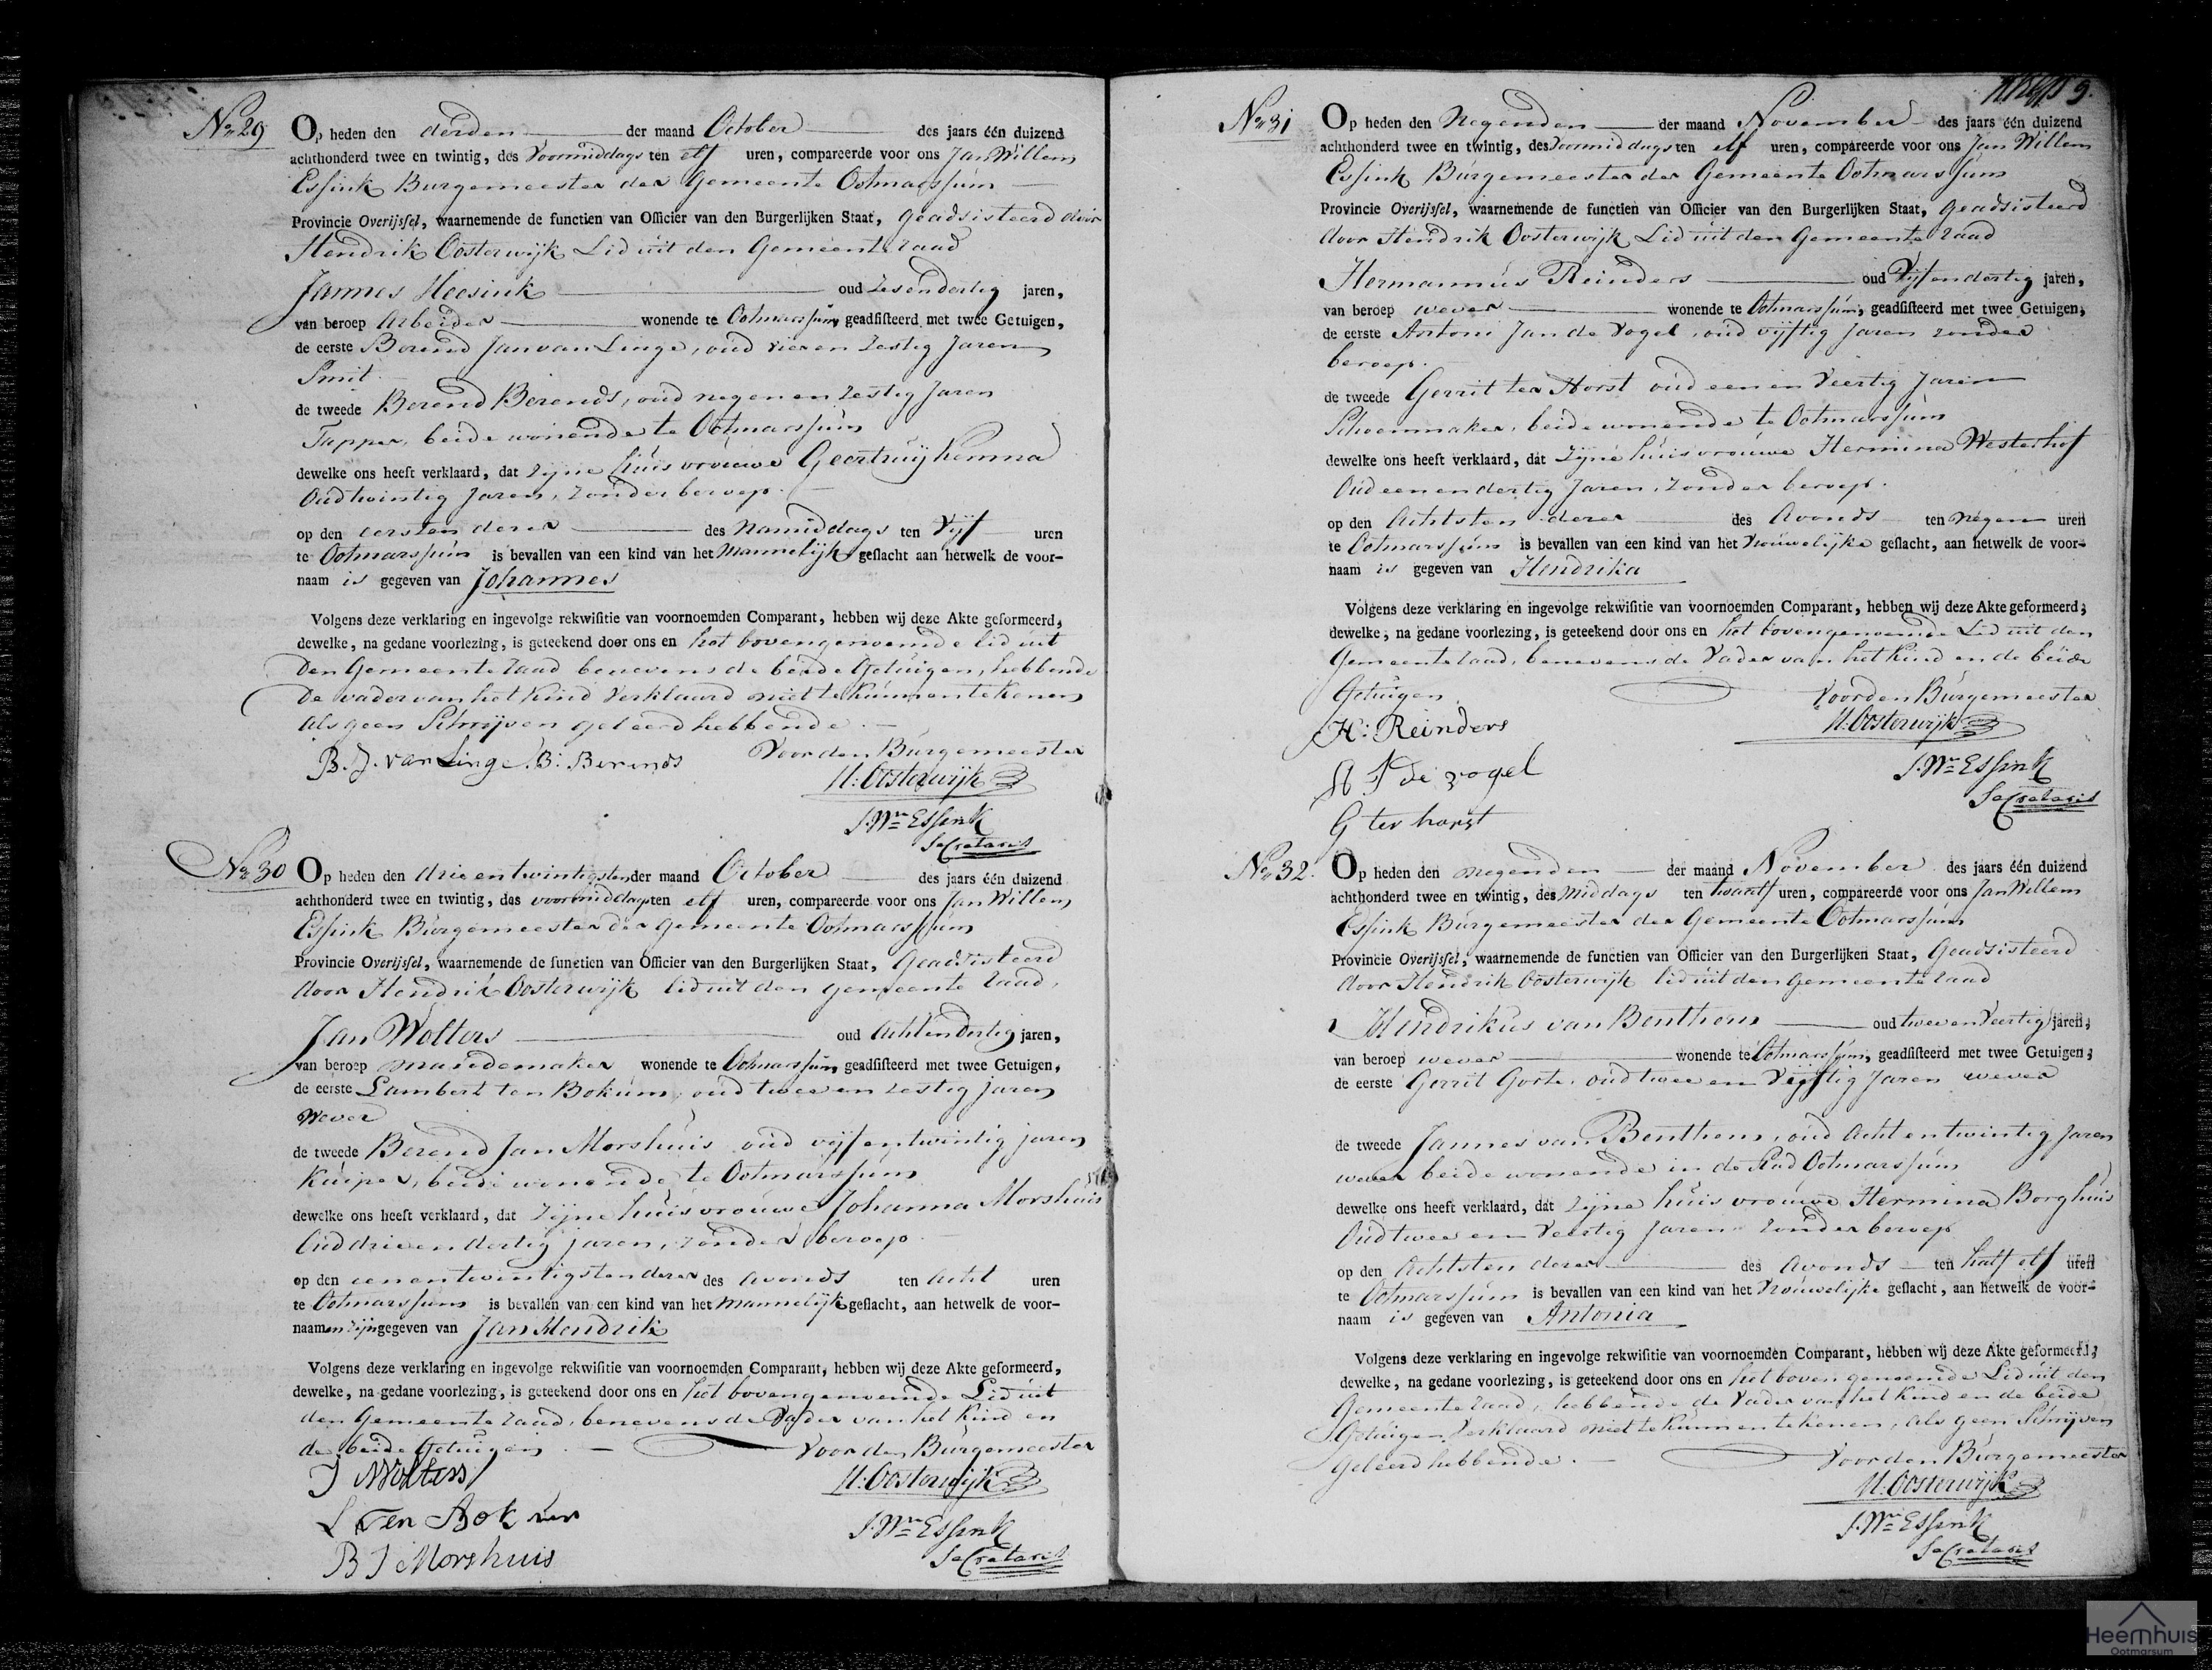 No 29 Op heden den derden der maand October des jaars één duizend
achthonderd twee en twintig, des Voormiddags ten elf uren, compareerde voor ons Jan Willem
Essink Burgemeester der Gemeente Ootmarssum
Provincie Overijssel, waarnemende de functien van Officier van den Burgerlijken Staat, geadsisteerd door
Hendrik Oosterwijk Lid uit den Gemeente raad
Jannes Heesink oud zesendertig jaren,
van beroep Arbeider wonende te Ootmarssum geadsisteerd met twee Getuigen,
de eerste Berend Jan van Linge, oud vier en zestig Jaren
Smit
de tweede Berend Berends, oud negen en zestig Jaren
Tapper, beide wonende te Ootmarssum
dewelke ons heeft verklaard, dat zijne huisvrouwe Geertruij Kemna
Oud twintig Jaren, zonder beroep.
op den eersten dezer des Namiddags ten Vijf uren
te Ootmarssum is bevallen van een kind van het Mannelijk geslacht aan hetwelk de voor-
naam is gegeven van Johannes
Volgens deze verklaring en ingevolge rekwisitie van voornoemden Comparant, hebben wij deze Akte geformeerd,
dewelke, na gedane voorlezing, is geteekend door ons en het bovengenoemde lid uit
den Gemeente raad benevens de beide Getuigen, hebbende
De vader van het Kind Verklaard niet te kunnen tekenen
als geen Schrijven geleerd hebbende.
B. J. van Linge B: Berends Voor den Burgemeester
H: Oosterwijk
J. Wm Essink
Secretaris
No 30 Op heden den drie en twintigsten der maand October des jaars één duizend
achthonderd twee en twintig, des voormiddags ten elf uren, compareerde voor ons Jan Willem
Essink Burgemeester der Gemeente Ootmarssum
Provincie Overijssel, waarnemende de functien van Officier van den Burgerlijken Staat, Geadsisteerd
door Hendrik Oosterwijk lid uit den gemeente raad,
Jan Wolters oud Achtendertig jaren,
van beroep mandemaker wonende te Ootmarssum geadsisteerd met twee Getuigen,
de eerste Lambert ten Bokum, oud twee en zestig jaren
Wever
de tweede Berend Jan Morshuis oud vijf en twintig jaren
Kuiper, beide wonende te Ootmarssum
dewelke ons heeft verklaard, dat zijne huisvrouwe Johanna Morshuis
Oud drie en dertig jaren, zonder beroep
op den eenentwintigsten dezer des avonds ten Acht uren
te Ootmarssum is bevallen van een kind van het Mannelijk geslacht, aan hetwelk de voor-
naamen zijn gegeven van Jan Hendrik
Volgens deze verklaring en ingevolge rekwisitie van voornoemden Comparant, hebben wij deze Akte geformeerd,
dewelke, na gedane voorlezing, is geteekend door ons en het bovengenoemde Lid uit
den Gemeente raad, benevens de Vader van het Kind en
de beide Getuigen. Voor den Burgemeester
J Wolters H: Oosterwijk
L ten Bokum J. Wm Essink
B J Morshuis Secretaris
9.
No 31 Op heden den Negenden der maand November des jaars één duizend
achthonderd twee en twintig, des Voormiddags ten elf uren, compareerde voor ons Jan Willem
Essink Burgemeester der Gemeente Ootmarssum
Provincie Overijssel, waarnemende de functien van Officier van den Burgerlijken Staat, geadsisteerd
door Hendrik Oosterwijk Lid uit den Gemeente raad
Hermannus Reinders oud Vijfendertig jaren,
van beroep wever wonende te Ootmarssum, geadsisteerd met twee Getuigen,
de eerste Antoni Jan de Vogel, oud vijftig Jaren zonder
beroep.
de tweede Gerrit ter Horst oud een en Veertig Jaren
Schoenmaker, beide wonende te Ootmarssum
dewelke ons heeft verklaard, dat zijne huisvrouwe Hermina Westerhof
Oud een en dertig Jaren, zonder beroep.
op den Achtsten dezer des Avonds ten negen uren
te Ootmarssum is bevallen van een kind van het Vrouwelijke geslacht, aan hetwelk de voor-
naam is gegeven van Hendrika
Volgens deze verklaring en ingevolge rekwisitie van voornoemden Comparant, hebben wij deze Akte geformeerd,
dewelke, na gedane voorlezing, is geteekend door ons en het bovengenoemde Lid uit den
Gemeente raad, benevens de Vader van het Kind en de beide
Getuigen Voor den Burgemeester
H: Reinders H: Oosterwijk
A J de vogel J. Wm Essink
G ter horst Secretaris
No 32. Op heden den negenden der maand November des jaars één duizend
achthonderd twee en twintig, des Middags ten twaalf uren, compareerde voor ons Jan Willem
Essink Burgemeester der Gemeente Ootmarssum
Provincie Overijssel, waarnemende de functien van Officier van den Burgerlijken Staat, Geadsisteerd
door Hendrik Oosterwijk lid uit den Gemeente raad
Hendrikus van Benthem oud twee en Veertig jaren,
van beroep wever wonende te Ootmarssum, geadsisteerd met twee Getuigen,
de eerste Gerrit Gorte, oud twee en Vijftig Jaren wever
de tweede Jannes van Benthem, oud Acht en twintig Jaren
wever beide wonende in de Stad Ootmarssum
dewelke ons heeft verklaard, dat zijne huisvrouwe Hermina Borghuis
Oud twee en Veertig Jaren zonder beroep
op den Achtsten dezer des Avonds ten half elf uren
te Ootmarssum is bevallen van een kind van het Vrouwelijke geslacht, aan hetwelk de voor-
naam is gegeven van Antonia
Volgens deze verklaring en ingevolge rekwisitie van voornoemden Comparant, hebben wij deze Akte geformeerd,
dewelke, na gedane voorlezing, is geteekend door ons en het boven genoemde Lid uit den
Gemeente raad, hebbende de Vader van het Kind en de beide
Getuigen Verklaard niet te kunnen tekenen, als geen Schrijven
Geleerd hebbende. Voor den Burgemeester
H: Oosterwijk
J. Wm Essink
Secretaris
Heemhuis
Ootmarsum